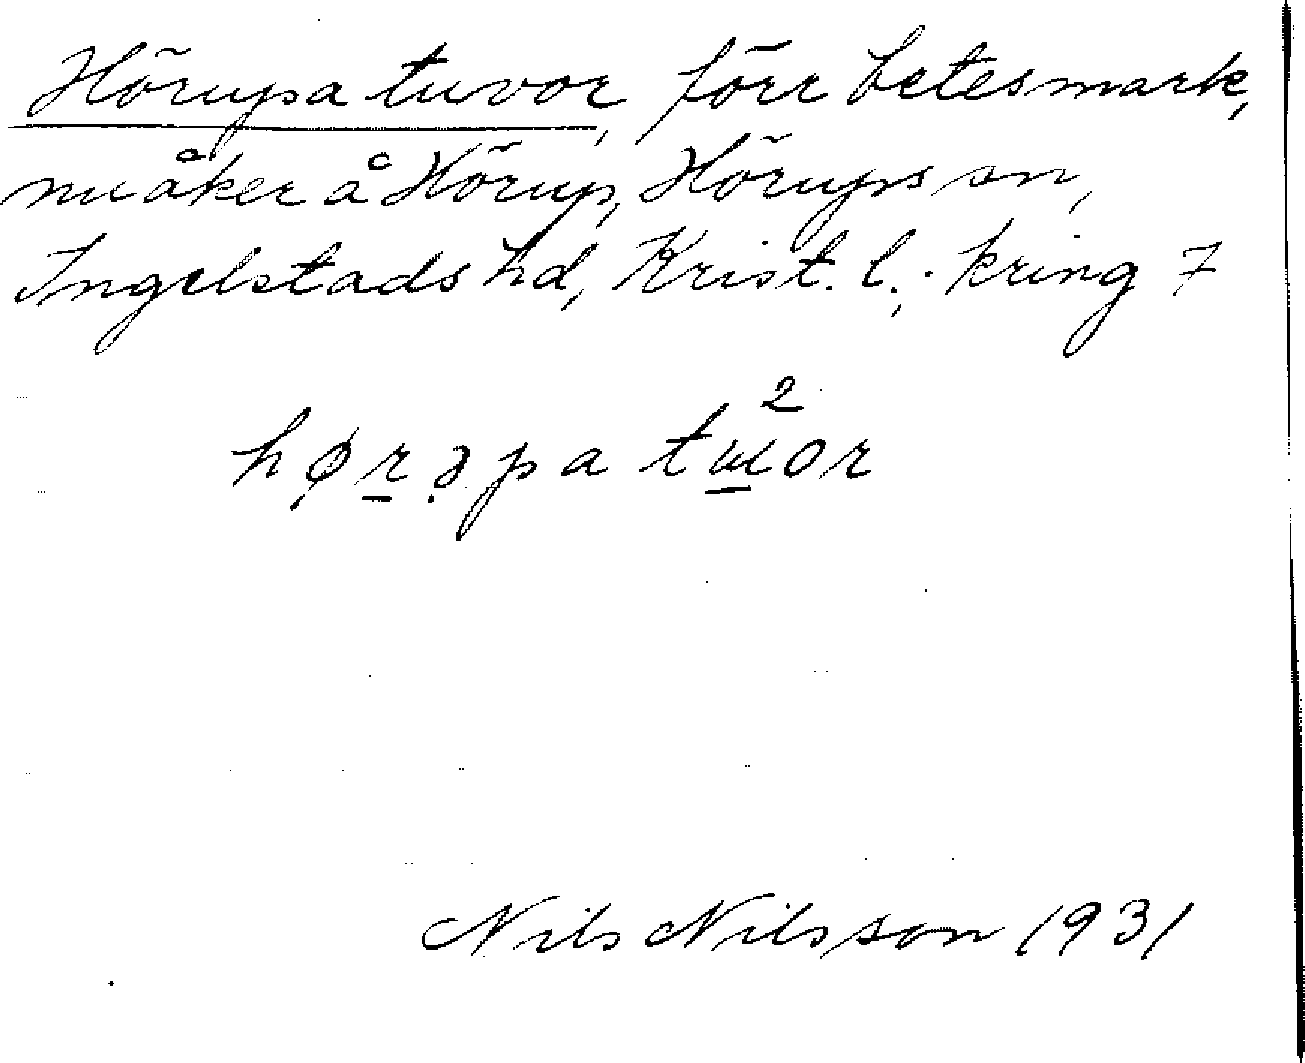 Hörupa tuvor, förr betesmark,
nu åker å Hörup, Hörups sn,
Ingelstads hd, Krist. l.; kring 7
2
Nils Nilsson 1931